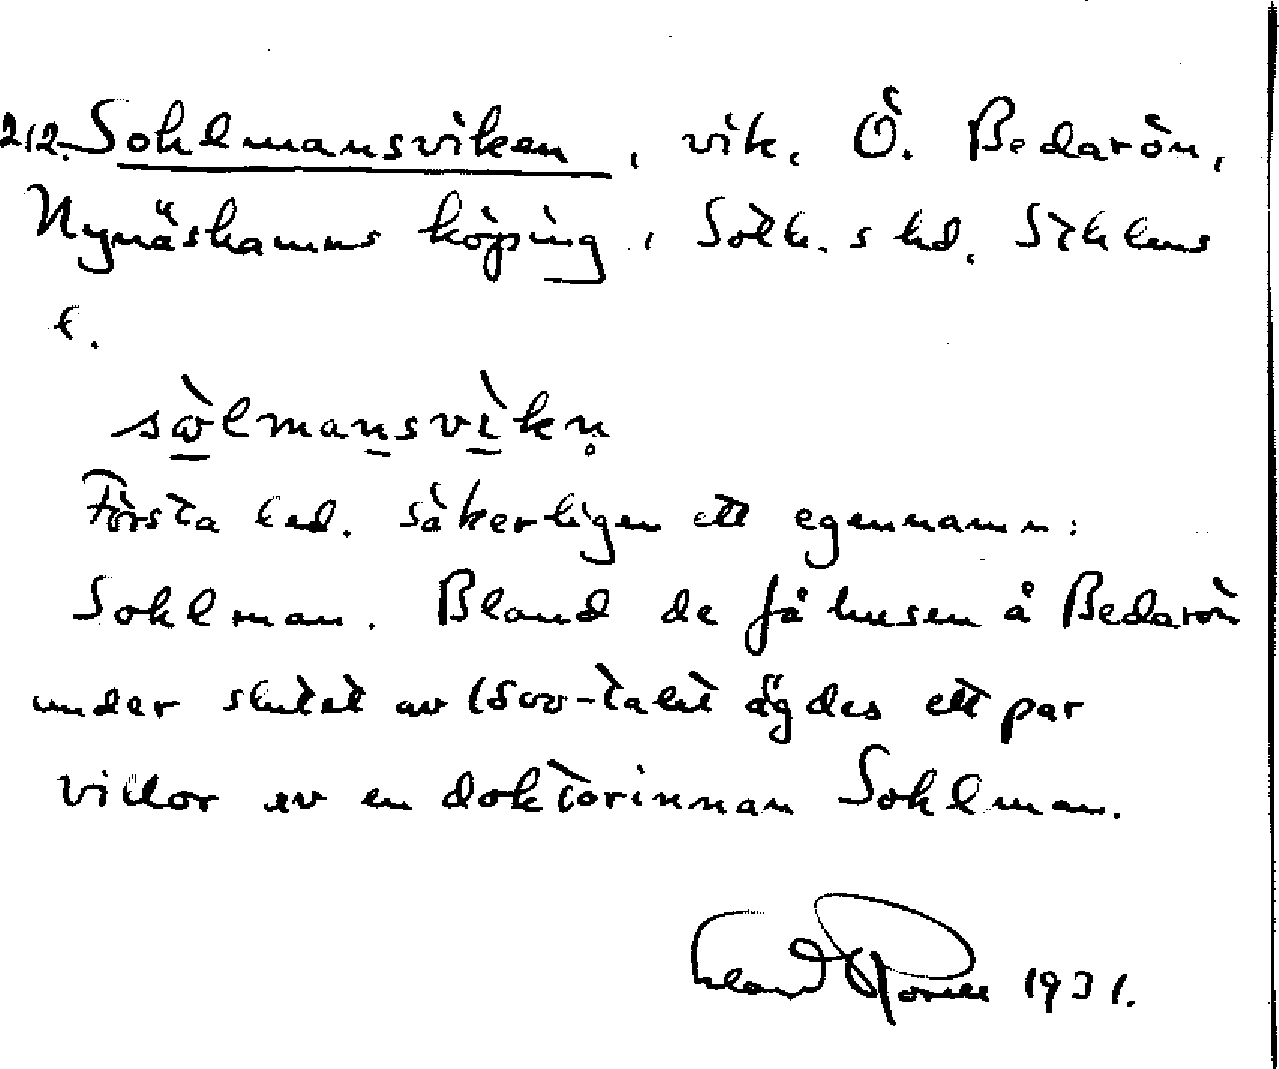 212. Sohlmansviken, vik, Ö. Bedarön,
Nynäshamns köping, Soth.s hd, Sthlms
l.
sὼlmansvìkn̥
Första led. säkerligen ett egennamn:
Sohlman. Bland de få husen å Bedarön
under slutet av 1800-talet ägdes ett par
villor av en doktorinnan Sohlman.
1931.